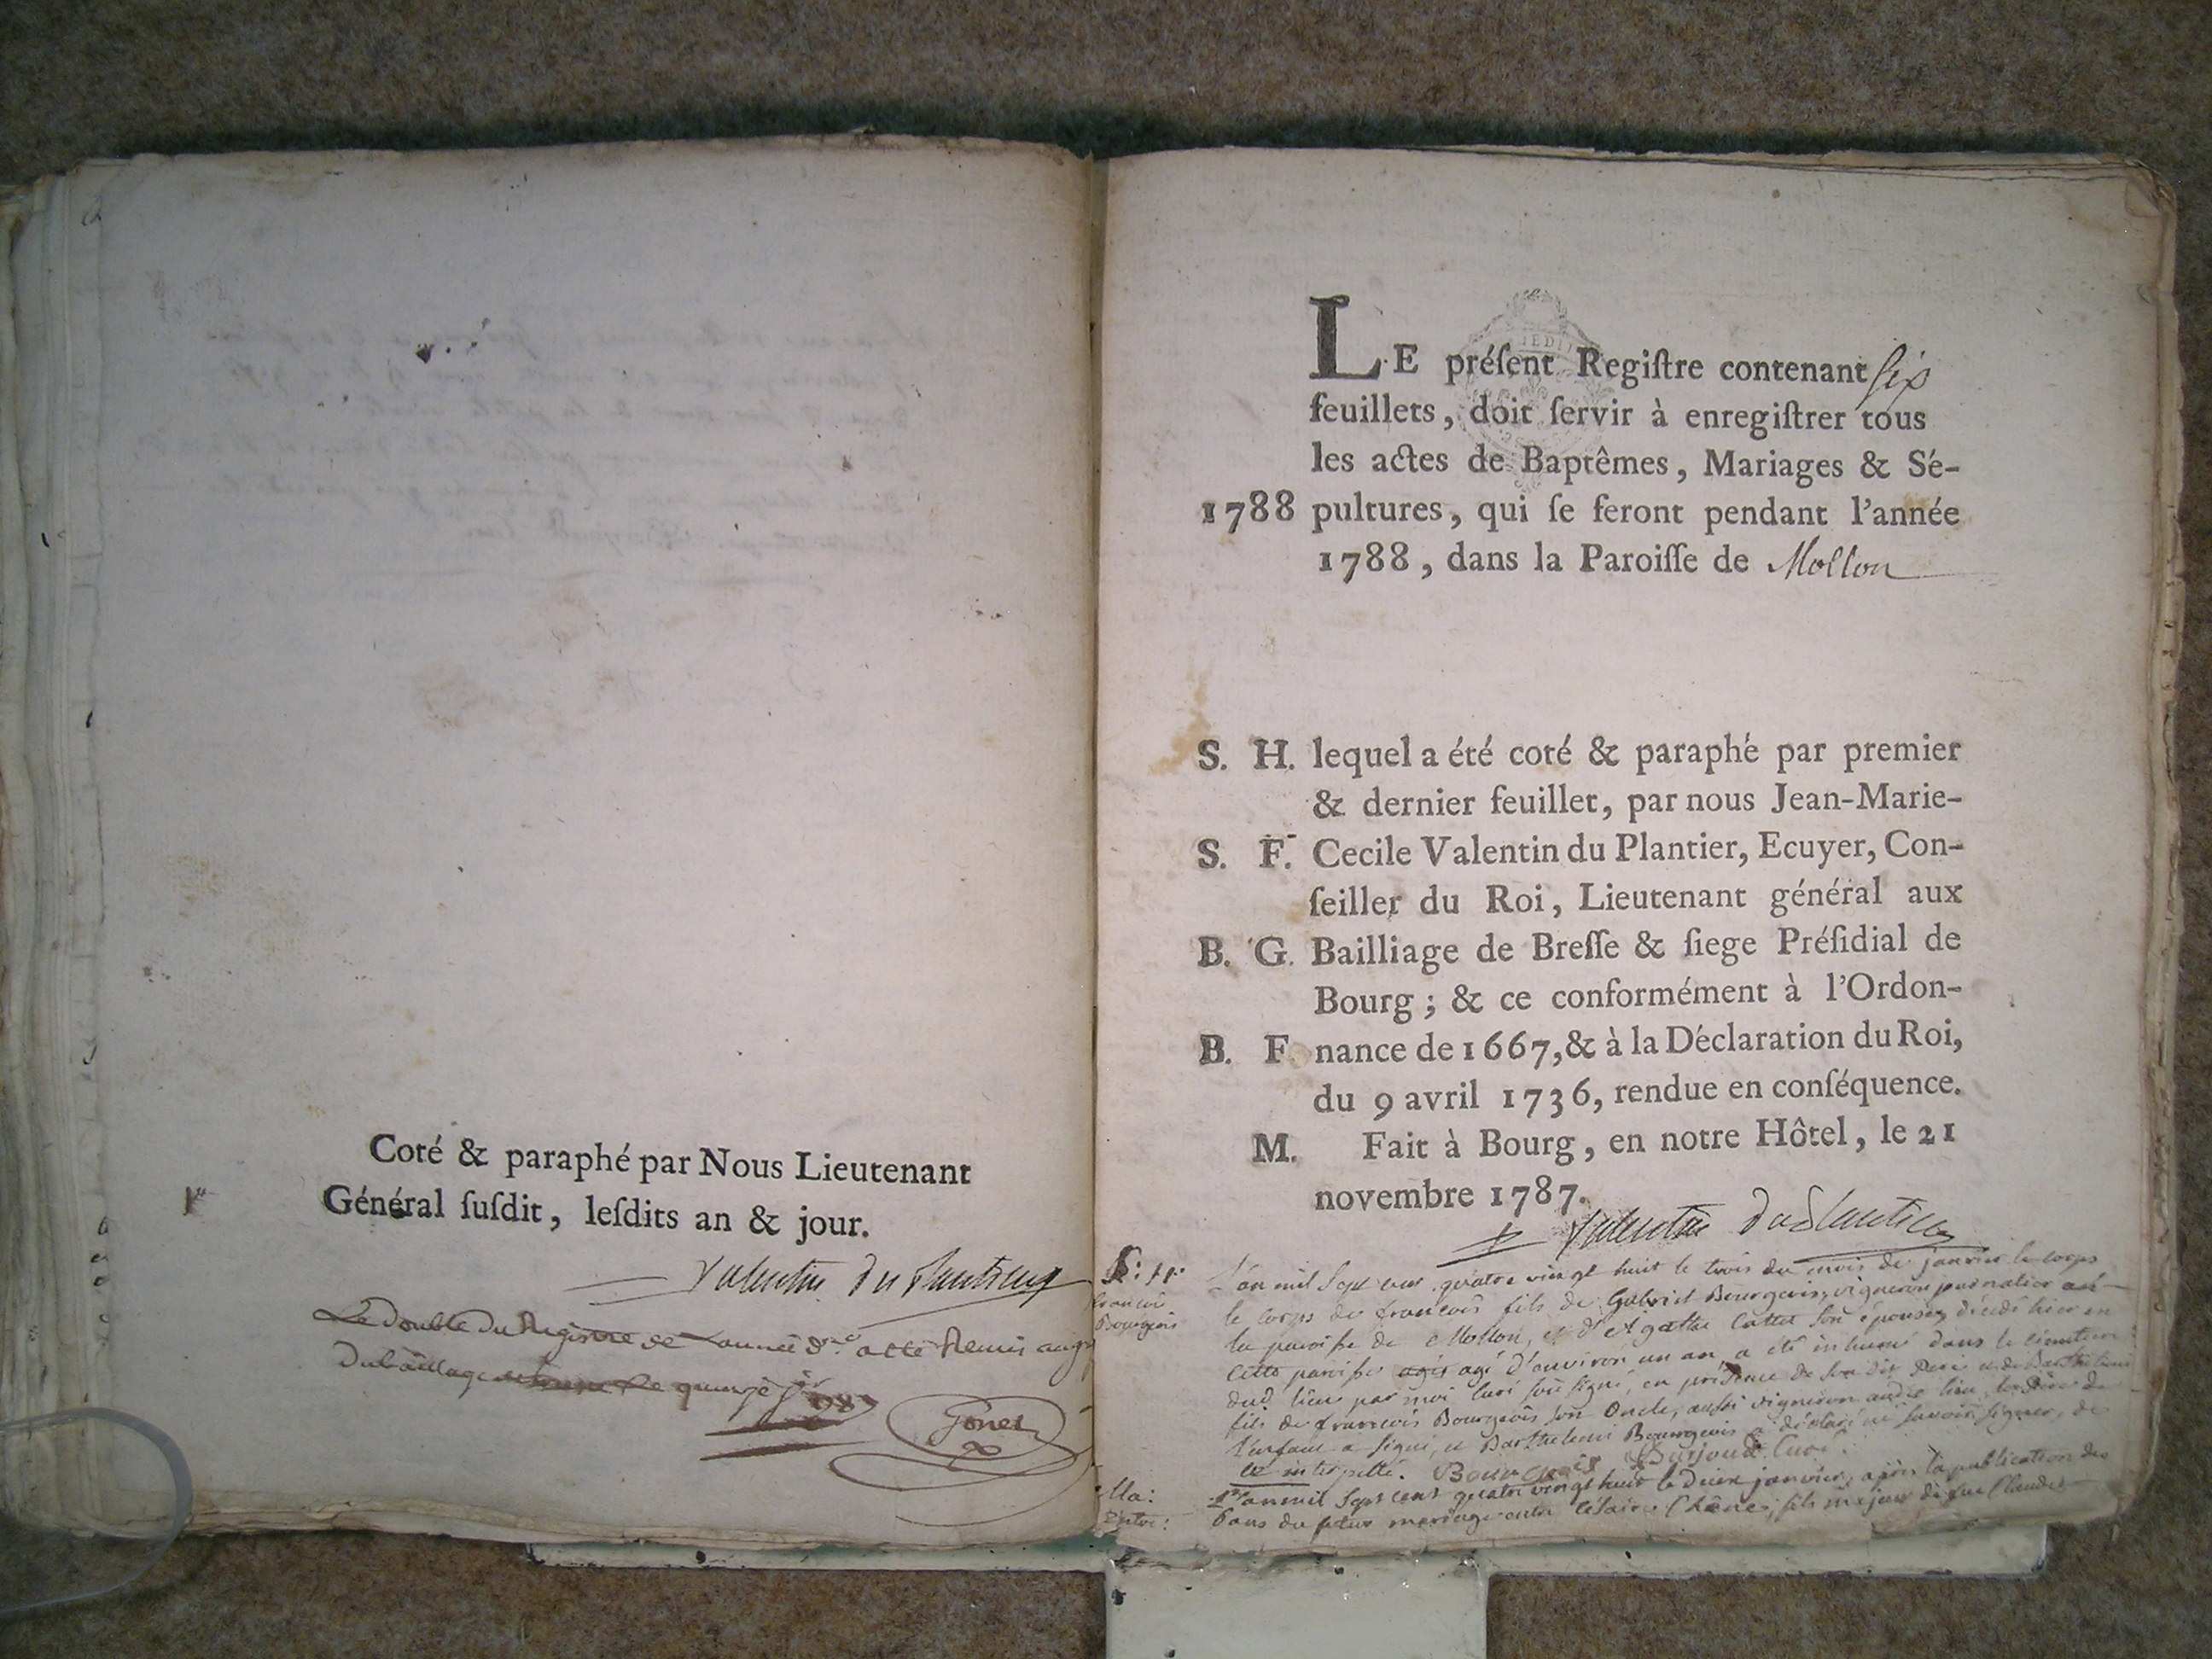 Coté & paraphé par Nous Lieutenant
Général ſuſdit, leſdits an & jour.
Valentin du Plantier
Le Double Du Registre de L'année a été Remis au
Du bailliage de le quinze
Gonet
LE préſent Regiſtre contenant six
feuillets, doit ſervir à enregiſtrer tous
les actes de Baptêmes, Mariages & Sé-
1788 pultures, qui ſe feront pendant l'année
1788, dans la Paroiſſe de Mollon
S. H. lequel a été coté & paraphé par premier
& dernier feuillet, par nous Jean-Marie-
S. F. Cecile Valentin du Plantier, Ecuyer, Con-
ſeiller du Roi, Lieutenant général aux
B. G. Bailliage de Breſſe & ſiege Préſidial de
Bourg; & ce conformément à l'Ordon-
B. F. nance de 1667, & à la Déclaration du Roi,
du 9 avril 1736, rendue en conſéquence.
M. Fait à Bourg, en notre Hôtel, le 21
novembre 1787.
Valentin du Plantier
françois
Bourgeois
L'an mil sept cent quatre vingt huit le trois du mois de janvier le corps
le corps de francois fils de Gabriel Bourgeois, vigneron journalier
la paroisse de Mollon, et d'Agathe Cattet son épouse, décédé hier en
cette paroisse agé d'environ un an a été inhumé dans le cimetiere
dud. lieu par moi curé soussigné, en présence de son dit pere et de Barthelemi
fils de francois Bourgeois son oncle, aussi vigneron audit lieu, le pere de
l'enfant a signé, et Barthelemi Bourgeois a déclaré ne savoir signer, de
ce interpellé. Bourgeois curé
Ma:
Entre:
L'an mil sept cent quatre vingt huit le deux janvier, après la publication des
bans du futur mariage entre Césaire Chêne, fils majeur de feu Claude